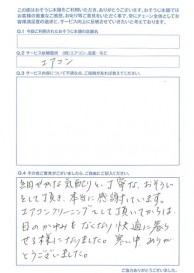 この度はおそうじ本舗をご利用いただき、ありがとうございます。おそうじ本舗では
お客様の貴重なご感想、お叱りなどご意見をいただく事で、常にチェーン全体としてお
客様満足度の追求、サービス向上に反映させていきたいと考えております。
Q.1 今回ご利用されたおそうじ本舗の店舗名
Q.2 サービス依頼箇所（例）エアコン、浴室…など
エアコン
Q.3 サービス内容について不満な点、ご指摘があれば教えてください
Q.4 その他ご意見がございましたら、ご自由にご記入ください。
細やかな気配りと、丁寧な、おそうじ
をして頂き、本当に感謝しています。
エアコンクリーニングをして頂いてからは、
目のかゆみもなくなり、快適に暮らせ
る様になりました。寒い中ありが
とうございました。
ご協力ありがとうございました。